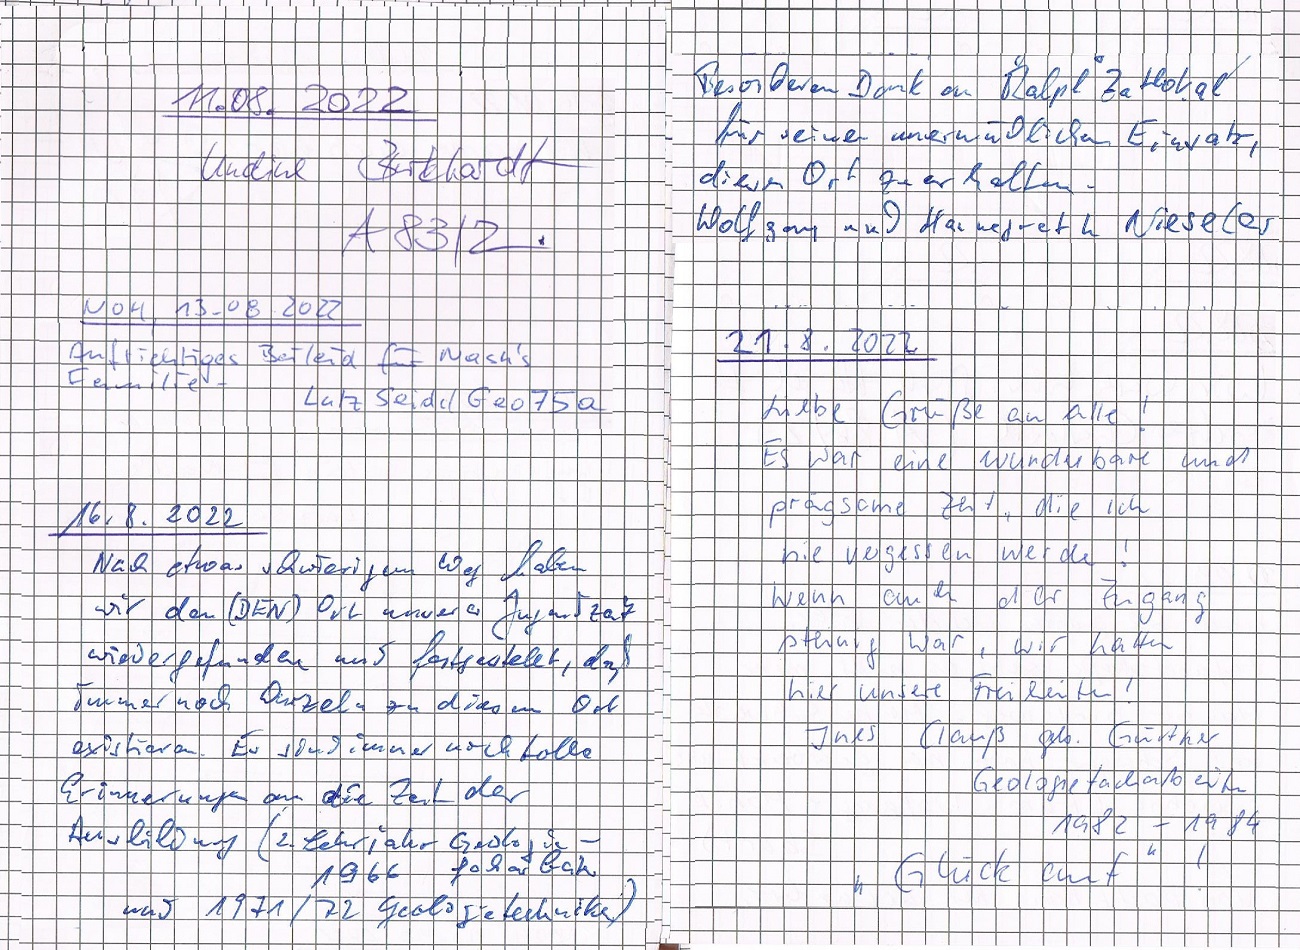 11.08. 2022
Undine Burkhardt
A 83/2.
NOH, 13-08 2022
Aufrichtiges Beileid für Nash's
Familie -
Lutz Seidel Geo75a
16.8. 2022
Nach etwas schwierigem Weg haben
wir den (DEN) Ort unserer Jugendzeit
wiedergefunden und festgestellt, daß
immer noch Wurzeln zu diesem Ort
existieren. Es sind immer noch tolle
Erinnerungen an die Zeit der
Ausbildung (2. Lehrjahr Geologie -
1966 facharbeiter
und 1971/72 Geologietechniker)
Besonderen Dank an "Ralph" Zatlokal
für seinen unermüdlichen Einsatz,
diesen Ort zu erhalten.
Wolfgang und Hannegreth Nieseler
21.8.2022
Liebe Grüße an alle!
Es war eine wunderbare und
prägsame Zeit, die ich
nie vergessen werde!
Wenn auch der Zugang
steinig war, wir hatten
hier unsere Freiheiten!
Ines Clauß geb. Gürtner
Geologiefacharbeiterin
1982 - 1984
"Glück auf"!